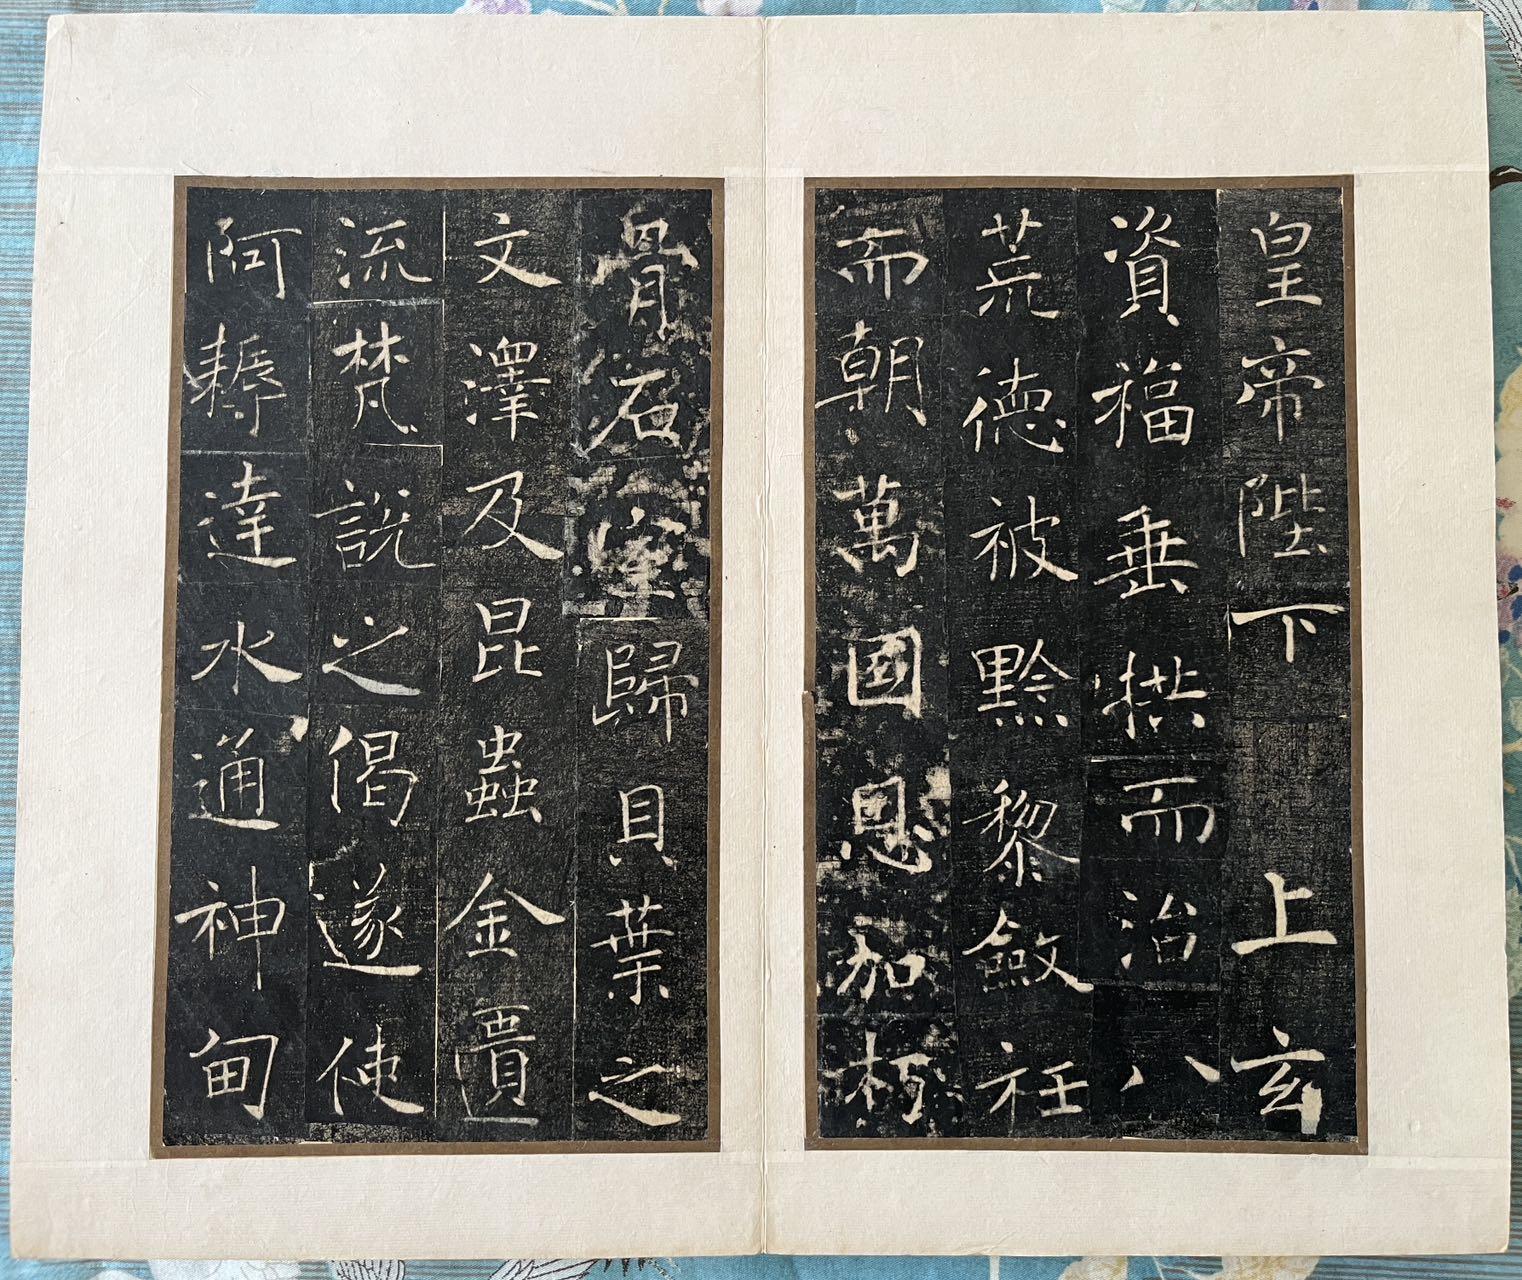 皇帝陛下上玄
資福垂拱而治八
荒德被黔黎斂衽
而朝萬國恩加朽
骨石室歸貝葉之
文澤及昆蟲金匱
流梵說之偈遂使
阿耨達水通神甸